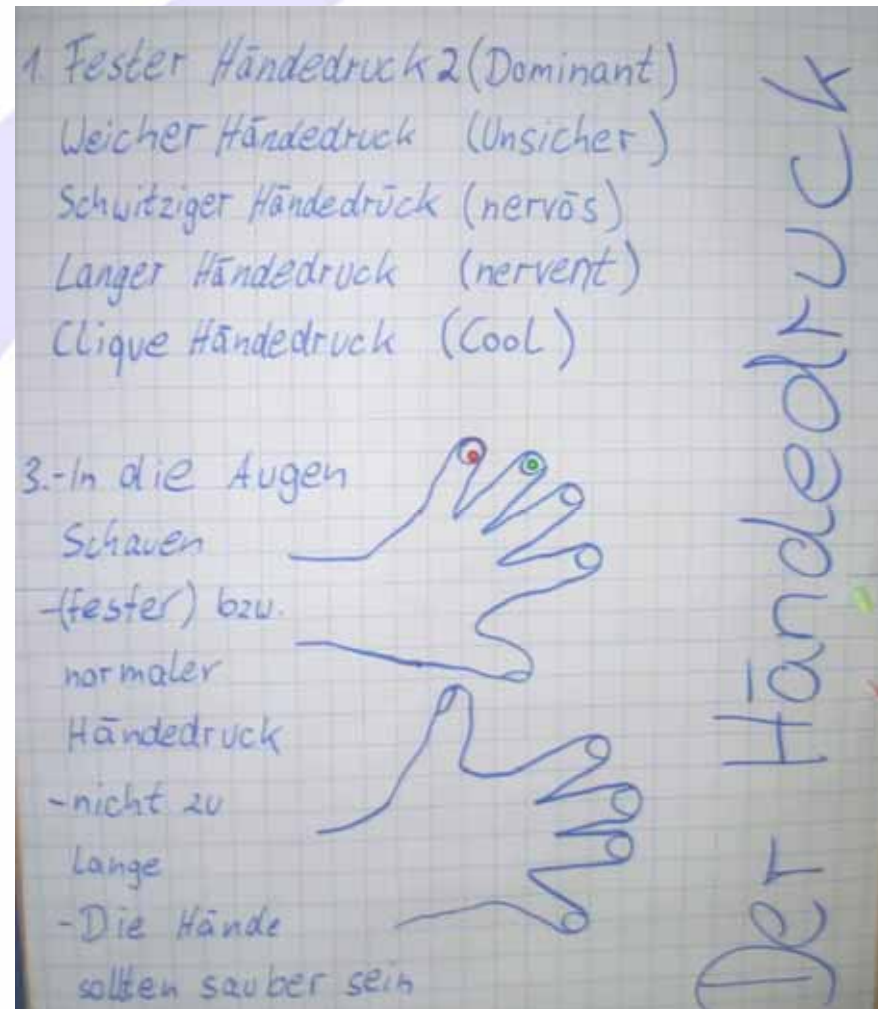 1. Fester Händedruck 2 (Dominant)
Weicher Händedruck (Unsicher)
Schwitziger Händedrück (nervös)
Langer Händedruck (nervent)
Clique Händedruck (Cool)
3.-In die Augen
Schauen
-(fester) bzw.
normaler
Händedruck
-nicht zu
Lange
-Die Hände
sollten sauber sein
Der Händedruck